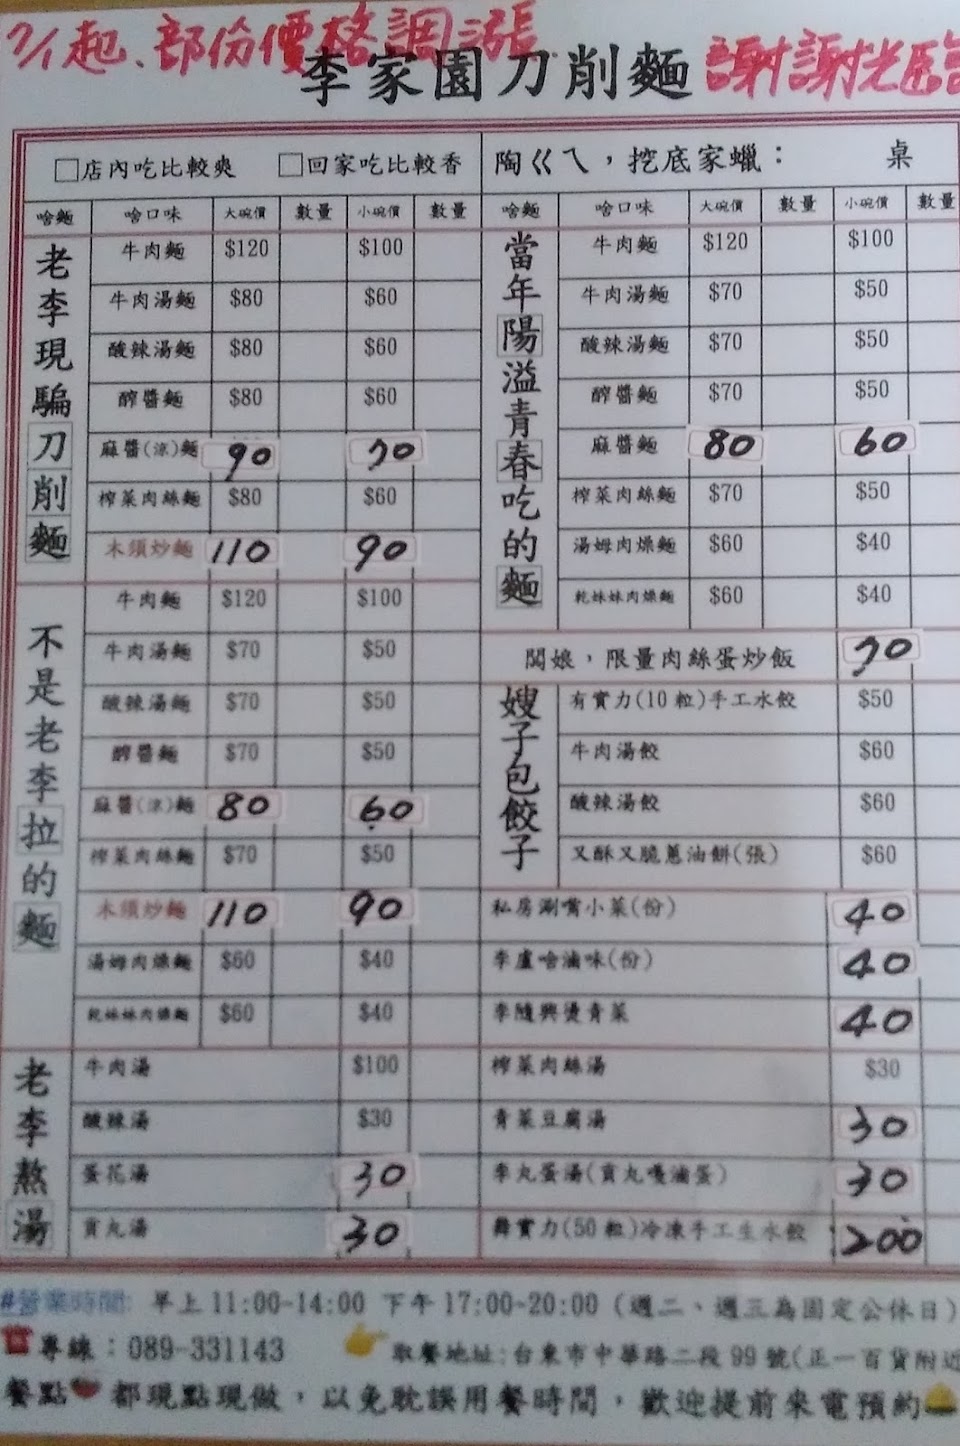 7/1起、部份價格調漲
李家園刀削麵
謝謝光臨
□店內吃比較爽 □回家吃比較香
陶ㄍㄟ，挖底家蠟： 桌
啥麵 啥口味 大碗價 數量 小碗價 數量
老李現騙刀削麵
牛肉麵 $120 $100
牛肉湯麵 $80 $60
酸辣湯麵 $80 $60
醡醬麵 $80 $60
麻醬(涼)麵 90 70
榨菜肉絲麵 $80 $60
木須炒麵 110 90
不是老李拉的麵
牛肉麵 $120 $100
牛肉湯麵 $70 $50
酸辣湯麵 $70 $50
醡醬麵 $70 $50
麻醬(涼)麵 80 60
榨菜肉絲麵 $70 $50
木須炒麵 110 90
湯姆肉燥麵 $60 $40
乾妹妹肉燥麵 $60 $40
老李熬湯
牛肉湯 $100
酸辣湯 $30
蛋花湯 30
貢丸湯 30
啥麵 啥口味 大碗價 數量 小碗價 數量
當年陽溢青春吃的麵
牛肉麵 $120 $100
牛肉湯麵 $70 $50
酸辣湯麵 $70 $50
醡醬麵 $70 $50
麻醬麵 80 60
榨菜肉絲麵 $70 $50
湯姆肉燥麵 $60 $40
乾妹妹肉燥麵 $60 $40
闆娘，限量肉絲蛋炒飯 70
嫂子包餃子
有實力(10粒)手工水餃 $50
牛肉湯餃 $60
酸辣湯餃 $60
又酥又脆蔥油餅(張) $60
私房涮嘴小菜(份) 40
李盧啥滷味(份) 40
李隨興燙青菜 40
榨菜肉絲湯 $30
青菜豆腐湯 30
李丸蛋湯(貢丸嘎滷蛋) 30
舞實力(50粒)冷凍手工生水餃 200
#營業時間: 早上11:00-14:00 下午17:00-20:00 (週二、週三為固定公休日)
專線：089-331143 取餐地址:台東市中華路二段99號(正一百貨附近
餐點 都現點現做，以免耽誤用餐時間，歡迎提前來電預約